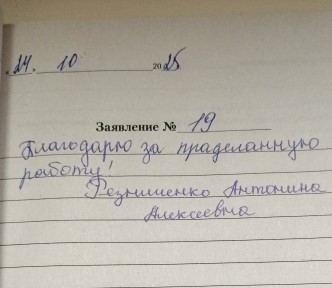 24. 10 2025
Заявление № 19
Благодарю за праделанную
работу!
Резниченко Антонина
Алексеевна